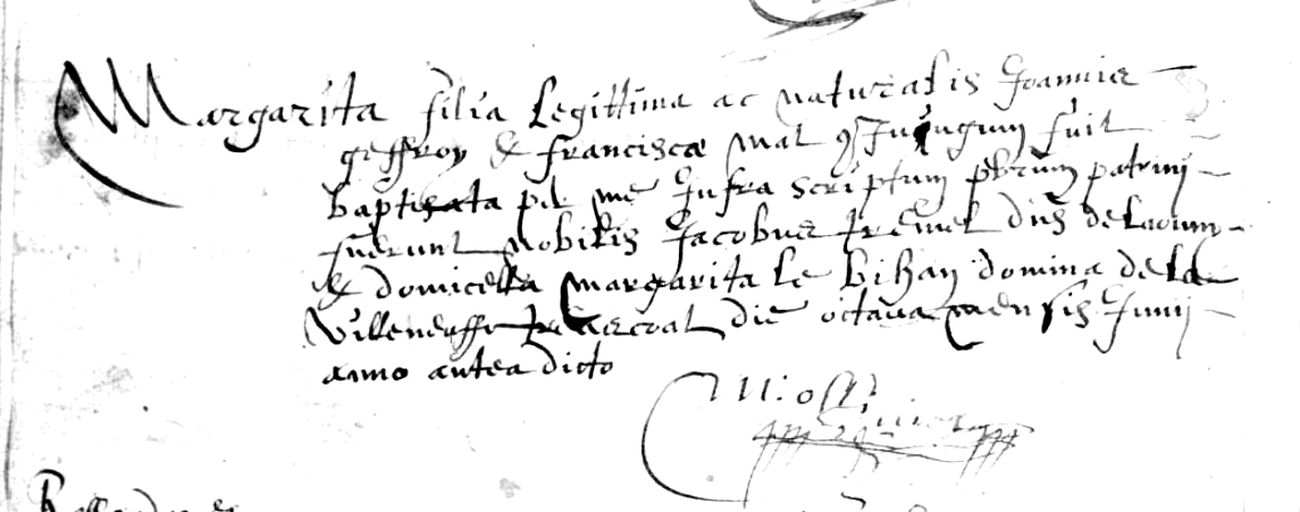 Margarita filia legittima ac naturalis Joannis
geffroy & franciscæ mal ꝯJugum fuit
baptisata per me Infra scriptum pbrum patrini
fuerunt nobilis Jacobus tremel dns de
& domicella margarita le bihan domina de la
villeneuffve die octava mensis Junij
anno antea dicto